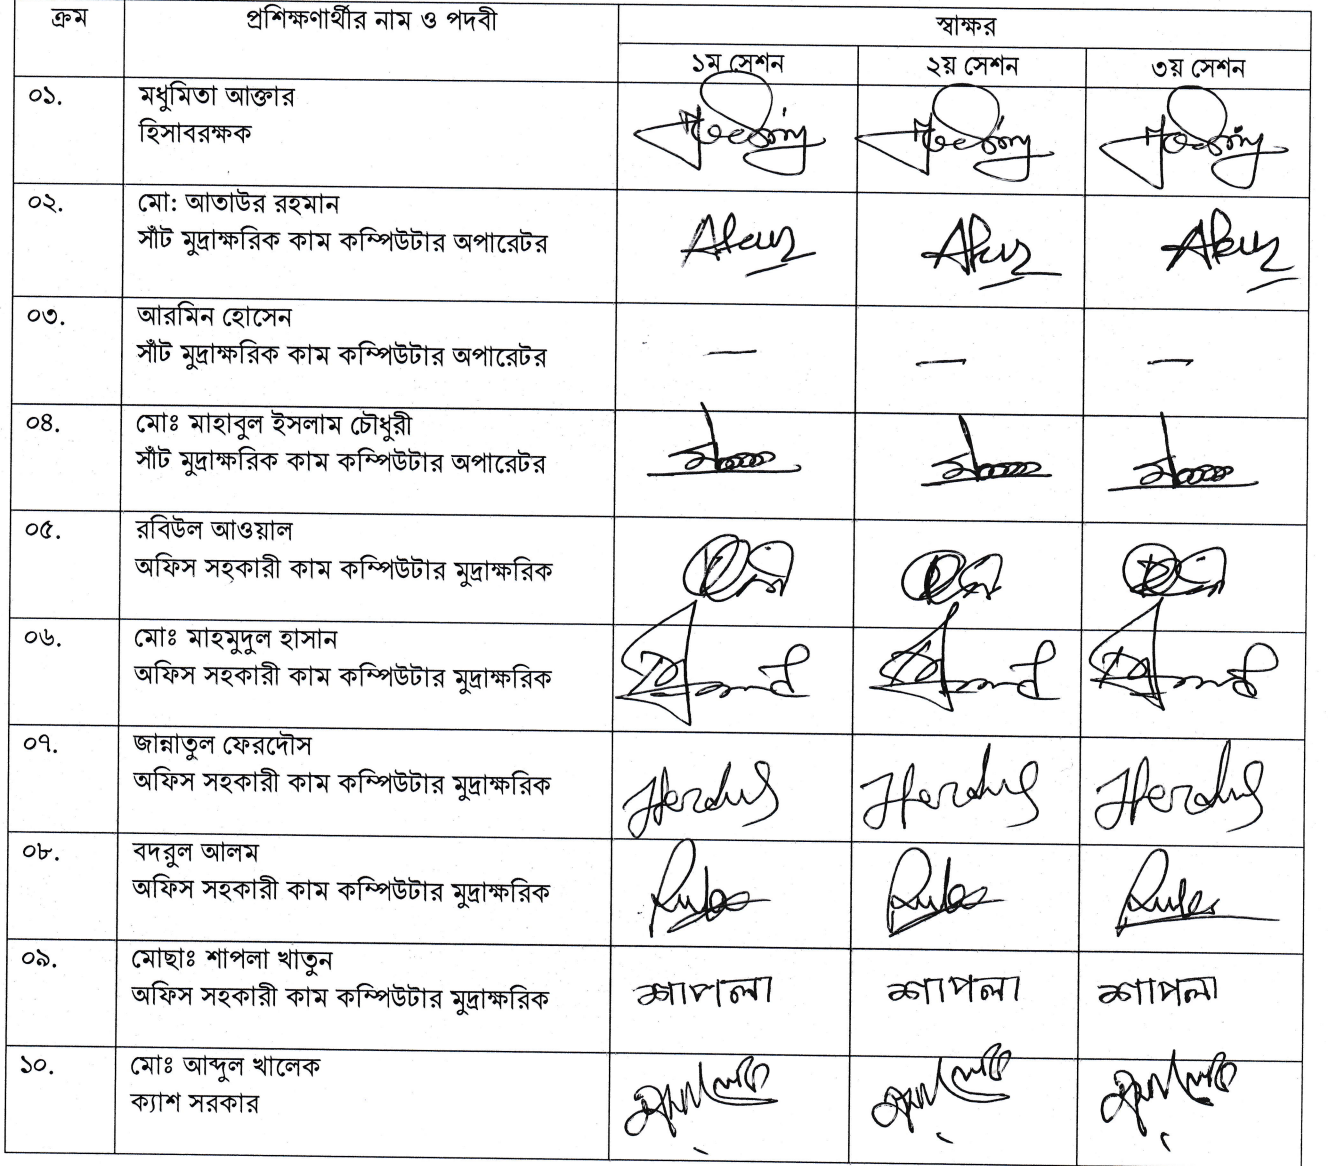 ক্রম প্রশিক্ষণার্থীর নাম ও পদবী স্বাক্ষর
১ম সেশন ২য় সেশন ৩য় সেশন
০১. মধুমিতা আক্তার
হিসাবরক্ষক
০২. মো: আতাউর রহমান
সাঁট মুদ্রাক্ষরিক কাম কম্পিউটার অপারেটর
০৩. আরমিন হোসেন
সাঁট মুদ্রাক্ষরিক কাম কম্পিউটার অপারেটর
— — —
০৪. মোঃ মাহাবুল ইসলাম চৌধুরী
সাঁট মুদ্রাক্ষরিক কাম কম্পিউটার অপারেটর
০৫. রবিউল আওয়াল
অফিস সহকারী কাম কম্পিউটার মুদ্রাক্ষরিক
০৬. মোঃ মাহমুদুল হাসান
অফিস সহকারী কাম কম্পিউটার মুদ্রাক্ষরিক
০৭. জান্নাতুল ফেরদৌস
অফিস সহকারী কাম কম্পিউটার মুদ্রাক্ষরিক
০৮. বদরুল আলম
অফিস সহকারী কাম কম্পিউটার মুদ্রাক্ষরিক
০৯. মোছাঃ শাপলা খাতুন
অফিস সহকারী কাম কম্পিউটার মুদ্রাক্ষরিক
শাপলা শাপলা শাপলা
১০. মোঃ আব্দুল খালেক
ক্যাশ সরকার